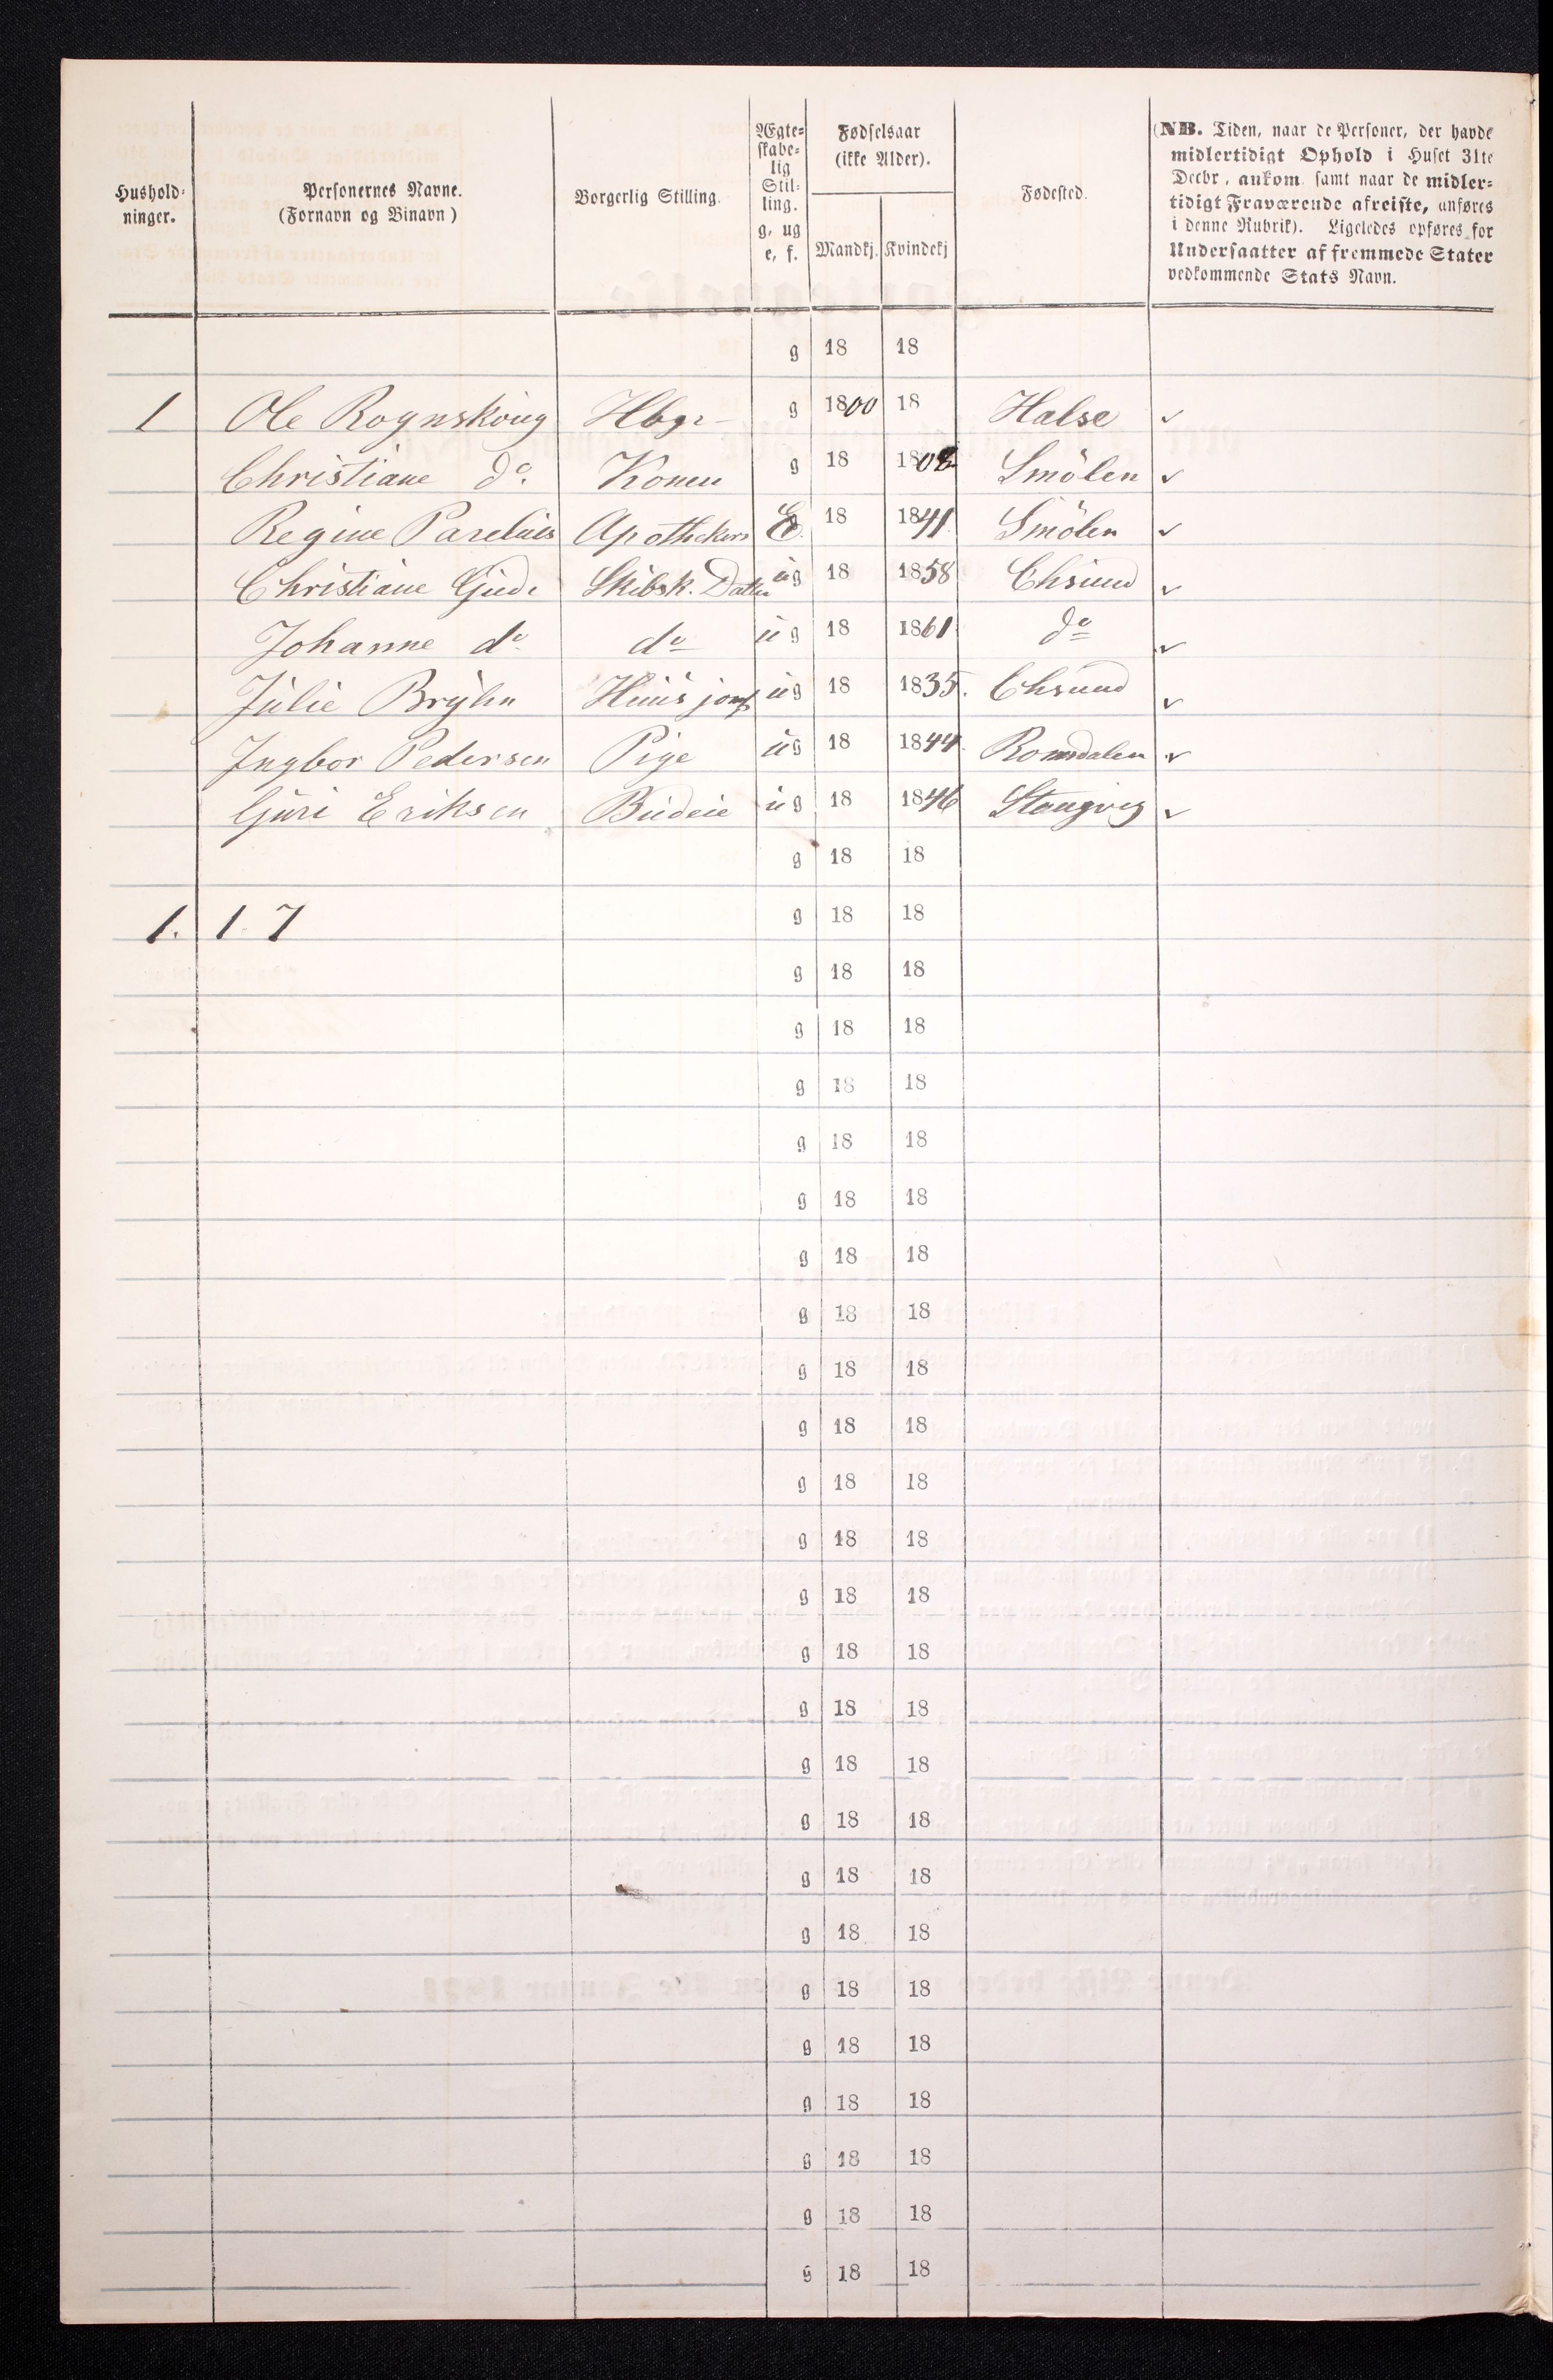 Hushold-
ninger.
Personernes Navne.
(Fornavn og Binavn)
Borgerlig Stilling.
Ægte-
skabe-
lig
Stil-
ling.
g, ug
e, f.
Fødselsaar
(ikke Alder).
Mandkj. Kvindekj
Fødested.
(NB. Tiden, naar de Personer, der havde
midlertidigt Ophold i Huset 31te
Decbr, ankom samt naar de midler-
tidigt Fraværende afreiste, anføres
i denne Rubrik). Ligeledes opføres for
Undersaatter af fremmede Stater
vedkommende Stats Navn.
g 18 18
1 Ole Rognskoug Hbgr g 1800 18 Halse ✓
Christiane do. Konen g 18 1802 Smölen ✓
Regine Parelius Apothekers E. 18 1841 Smölen ✓
Christiane Gude Skibsk. Datter ug 18 1858 Chsund ✓
Johanne do do ug 18 1861 do ✓
Julie Bryhn Huusjomf ug 18 1835. Chsund ✓
Ingbor Pedersen Pige ug 18 1844 Romsdalen ✓
Guri Eriksen Budeie ug 18 1846 Stangvig ✓
g 18 18
1. 1. 7 g 18 18
g 18 18
g 18 18
g 18 18
g 18 18
g 18 18
g 18 18
g 18 18
g 18 18
g 18 18
g 18 18
g 18 18
g 18 18
g 18 18
g 18 18
g 18 18
g 18 18
g 18 18
g 18 18
g 18 18
g 18 18
g 18 18
g 18 18
g 18 18
g 18 18